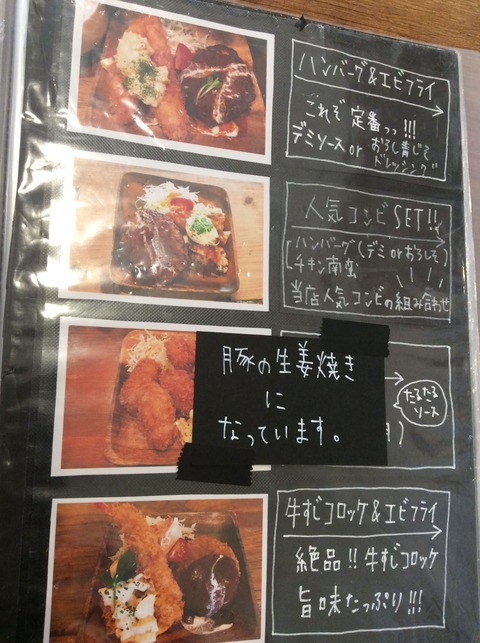 ハンバーグ&エビフライ
これぞ 定番っっ!!!
デミソース or おろし青じそ
ドレッシング
人気コンビSET!!
ハンバーグ(デミ or おろしそ)
チキン南蛮
当店人気コンビの組み合わせ
豚の生姜焼き
に
なっています。
たるたる
ソース
)
牛すじコロッケ&エビフライ
絶品!!牛すじコロッケ
旨味たっぷり!!!